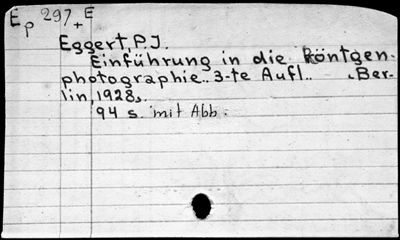 Ep 297+E
Eggert, P.J.
Einführung in die Röntgen-
photographie.. 3-te Aufl.. Ber-
lin, 1928.
94 s. mit Abb.